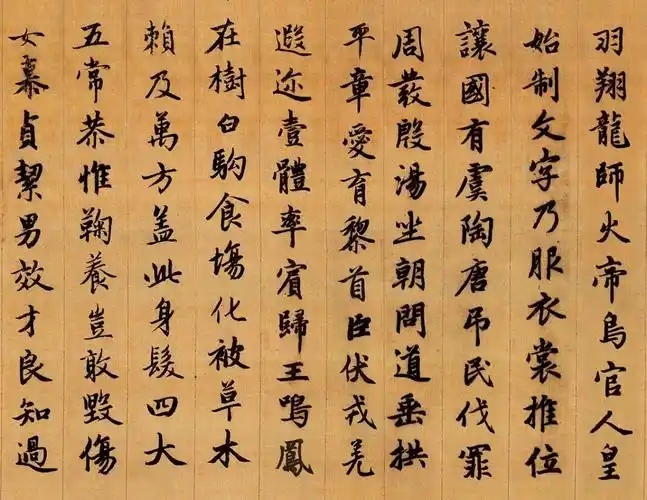 羽翔龍師火帝鳥官人皇
始制文字乃服衣裳推位
讓國有虞陶唐弔民伐罪
周發殷湯坐朝問道垂拱
平章愛育黎首臣伏戎羌
遐迩壹體率賓歸王鳴鳳
在樹白駒食場化被草木
賴及萬方盖此身髮四大
五常恭惟鞠養豈敢毀傷
女慕貞潔男效才良知過